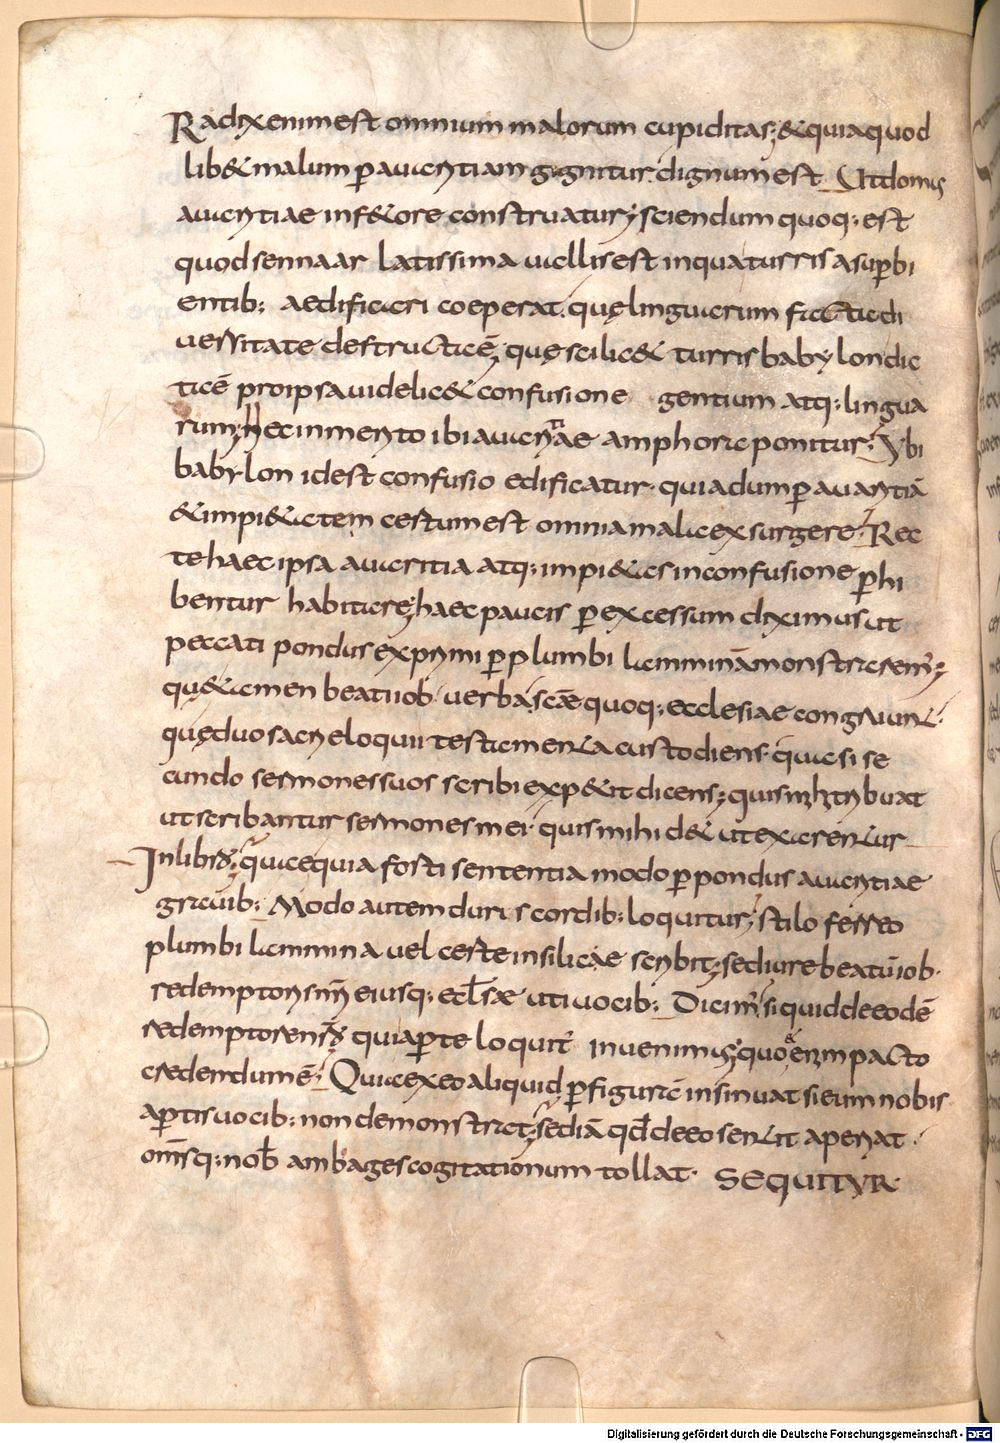 Radix enim est omnium malorum cupiditas; & quia quod
lib& malum p̱ auaritiam gignitur. dignum est Ut domus
auaritiae in f&ore construatur; sciendum quoq; est
quod sennaar latissima uallis est in qua turris a sup̱bi
entib; aedificari coeperat. quę linguarum facta di
uersitate destructa ē; quę scilic& turris babylon dic
ta ē pro ipsa uidelic& confusione gentium atq; lingua
rum; Nec inmerito ibi auaritiae amphora ponitur; Ubi
babylon id est confusio edificatur. quia dum p̱ auaritiā
& impi&atem certum est omnia mala exsurgere; Rec
te haec ipsa auaritia atq; impi&as in confusione p̱hi
bentur habitare; haec paucis p̱ excessum diximus ut
peccati pondus exprimi p̱ plumbi lamminā monstraremꝰ;
qu& tamen beati iob uerba scāe quoq; ecclesiae congruunt.
quę duo sacri eloquii testamenta custodiens. quasi se
cundo sermones suos scribi exp&iit dicens; quis m̄ tribuat
ut scribantur sermones mei. quis mihi d& ut exarentur
In libro; quae quia forti sententia modo p̱ pondus auaritiae
grauib; Modo autem duris cordib; loquitur; stilo ferreo
plumbi lammina uel certe in silicae scribit; sed iure beatū iob.
redemptoris nr̄i eiusq; ecl̄sae uti uocib; Dicimꝰ; si quid de eodē
redemptore nr̄o quia p̱te loquitꝰ inuenimus; quo ei eni pacto
credendum ē; Qui ea ex eo aliquid p̱ figurā insinuat si eum nobis
ap̱tis uocib; non demonstrat; sed iā qd̄ de eo sentit ap̱eriat.
om̄isq; nob̄ ambages cogitationum tollat. SEQUITUR.